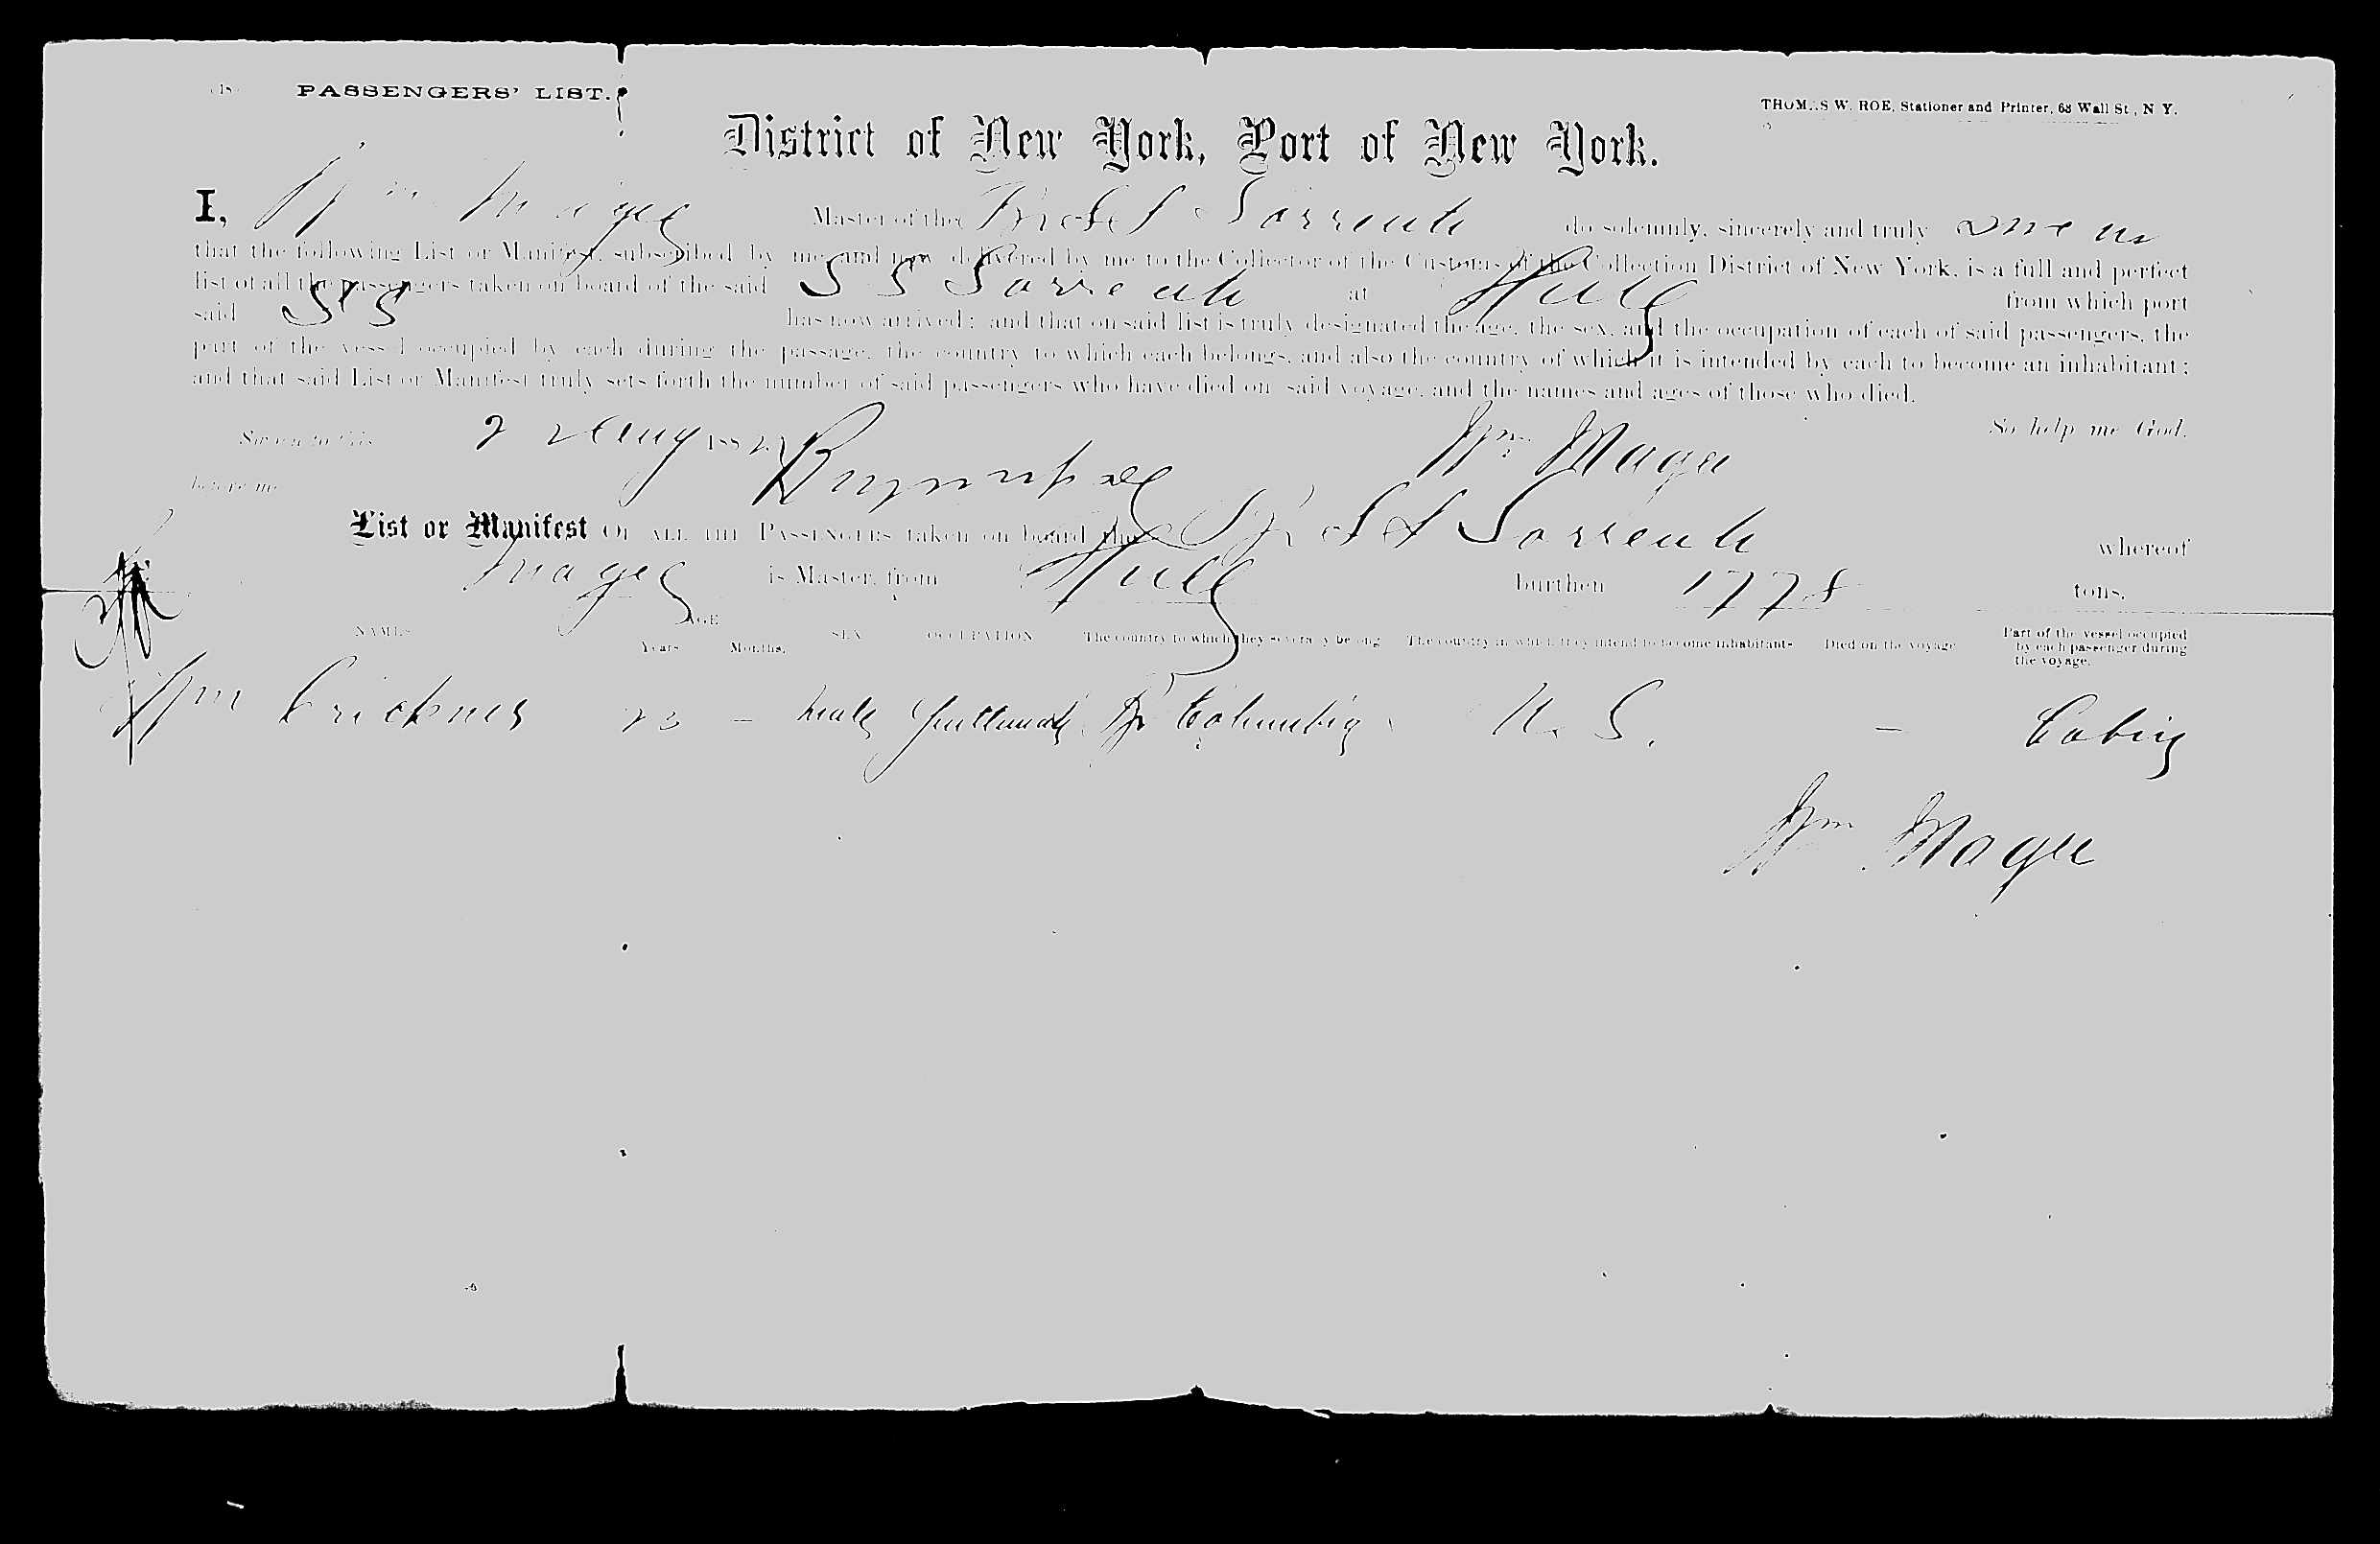 PASSENGERS' LIST.
THOMAS W. ROE, Stationer and Printer, 63 Wall St., N. Y.
District of New York, Port of New York.
I, Wm Magee Master of the Br S S Sorrento do solemnly, sincerely and truly swear
that the following List or Manifest, subscribed by me, and now delivered by me to the Collector of the Customs of the Collection District of New York, is a full and perfect
list of all the passengers taken on board of the said S S Sorrento at Hull from which port
said SS has now arrived; and that on said list is truly designated the age, the sex, and the occupation of each of said passengers, the
part of the vessel occupied by each during the passage, the country to which each belongs, and also the country of which it is intended by each to become an inhabitant;
and that said List or Manifest truly sets forth the number of said passengers who have died on said voyage, and the names and ages of those who died.
So help me God.
Sworn to this 2 Aug 188 Wm Magee
before me
List or Manifest OF ALL THE PASSENGERS taken on board the Br S S Sorrento whereof
Magee is Master, from Hull burthen 1778 tons.
NAMES AGE Years Months. SEX OCCUPATION The country to which they severally belong The country in which they intend to become inhabitants Died on the voyage Part of the vessel occupied by each passenger during the voyage.
Wm 23 — Male Gentleman Br Columbia U. S. — Cabin
Wm Magee